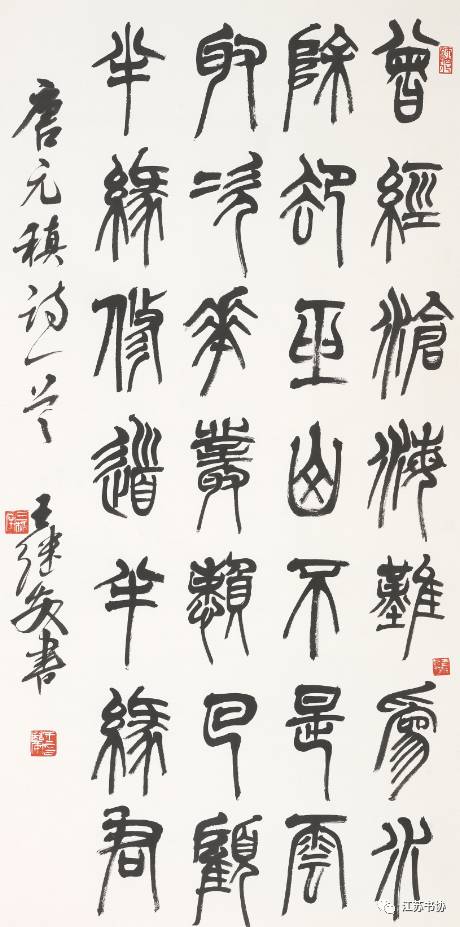 曾經滄海難為水
除却巫山不是雲
取次華叢懶回顧
半緣修道半緣君
唐元稹詩一首 王继安書
江苏书协